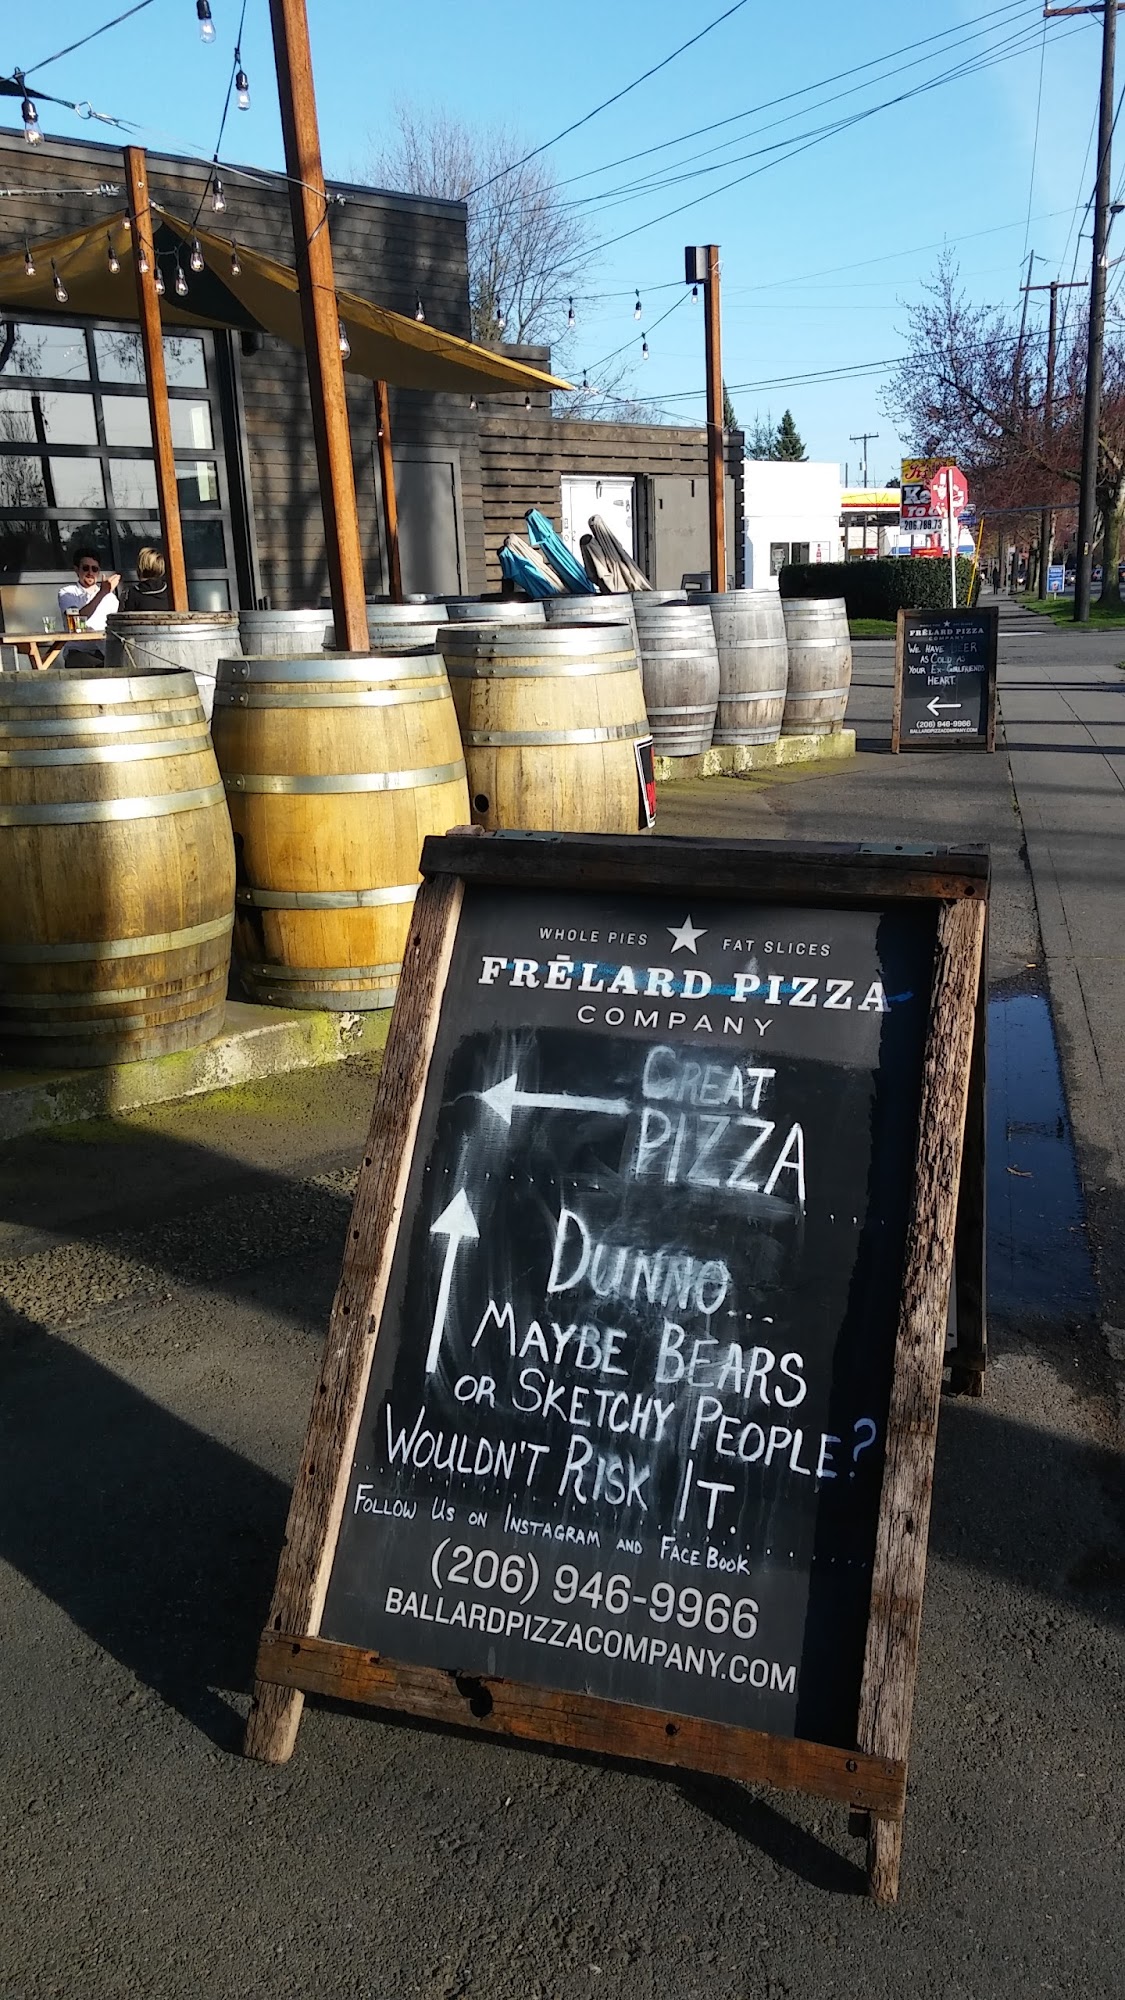 WHOLE PIES ★ FAT SLICES
FRĒLARD PIZZA
COMPANY
← GREAT
PIZZA
↑ DUNNO...
MAYBE BEARS
OR SKETCHY PEOPLE?
WOULDN'T RISK IT.
FOLLOW US ON INSTAGRAM AND FACEBOOK
(206) 946-9966
BALLARDPIZZACOMPANY.COM
FRĒLARD PIZZA
COMPANY
WE HAVE
AS COLD AS
YOUR EX-GIRLFRIENDS
HEART
←
(206) 946-9966
BALLARDPIZZACOMPANY.COM